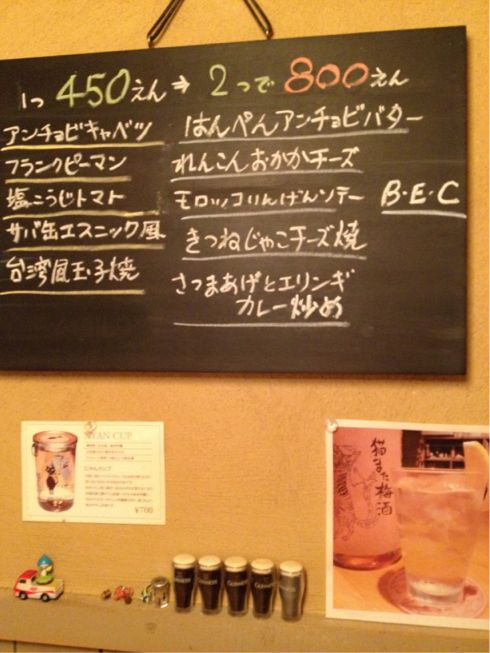 1つ 450えん ⇒ 2つで 800えん
アンチョビキャベツ
フランクピーマン
塩こうじトマト
サバ缶エスニック風
台湾風玉子焼
はんぺんアンチョビバター
れんこんおかかチーズ
モロッコいんげんソテー
きつねじゃこチーズ焼
さつまあげとエリンギ
カレー炒め
B・E・C
NYAN CUP
にゃんカップ
¥700
猫また梅酒
GUINNESS
GUINNESS
GUINNESS
GUINNESS